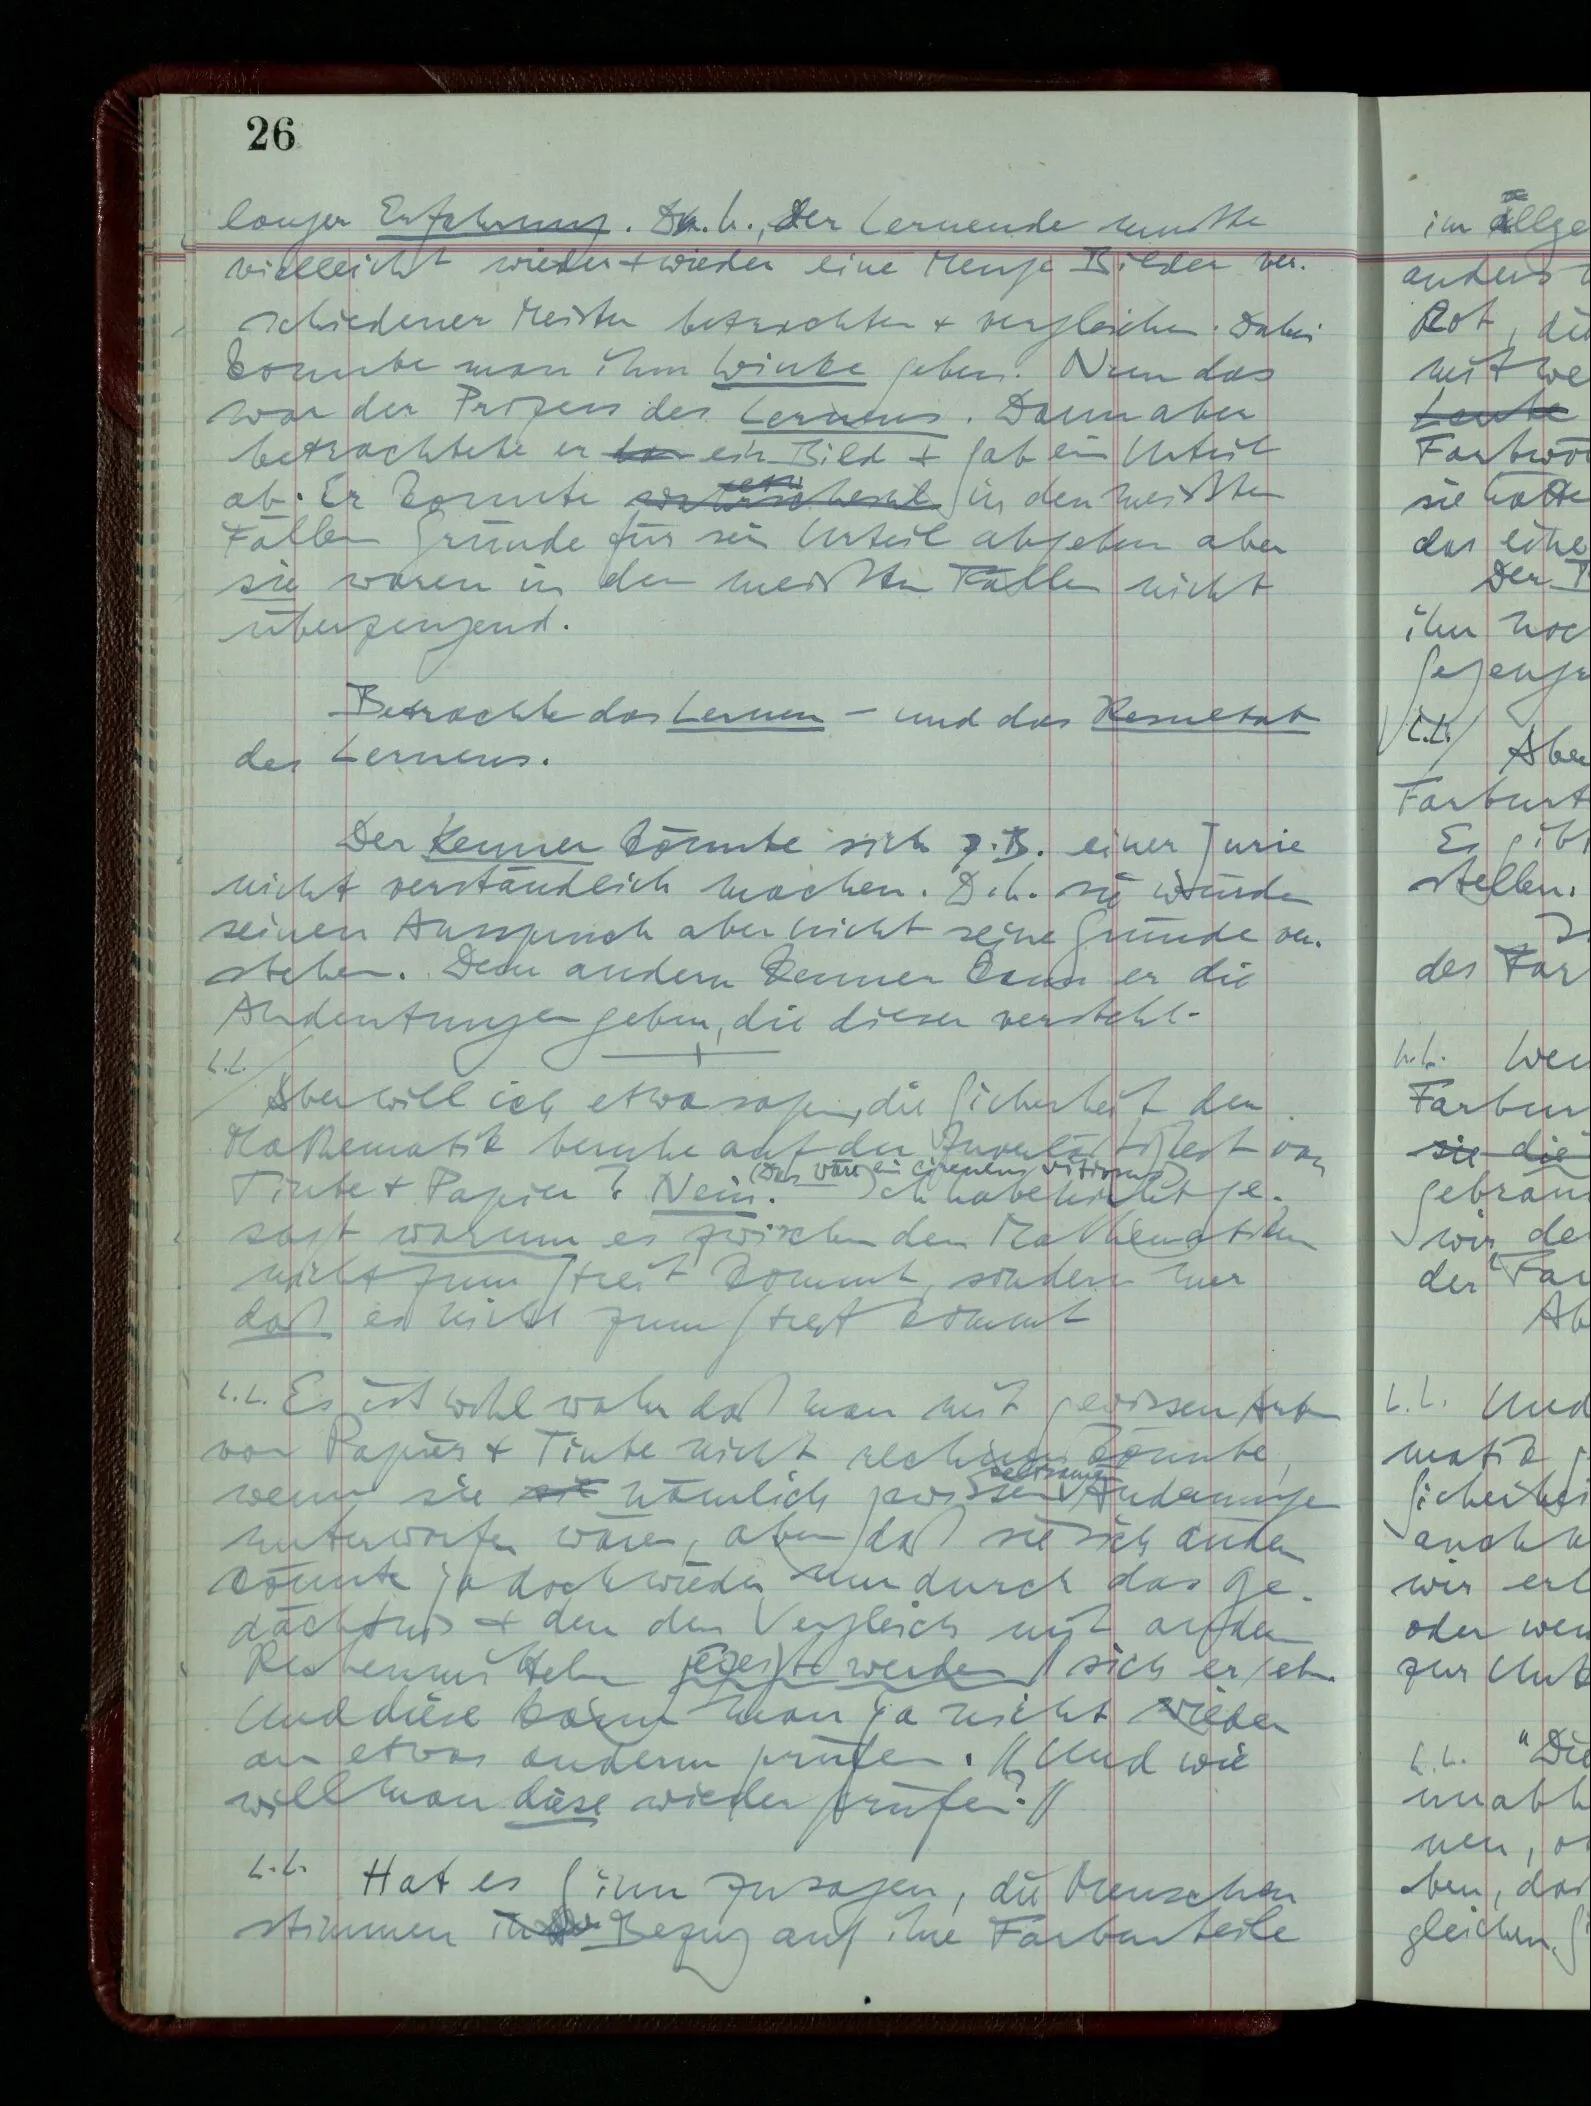 26
langer Erfahrung. D.h., der Lernende mußte
vielleicht wieder + wieder eine Menge Bilder ver-
schiedener Meister betrachten + vergleichen. Dabei
konnte man ihm Winke geben. Nun das
war der Prozess des Lernens. Dann aber
betrachtete er ein Bild + gab ein Urteil
ab. Er konnte in den meisten
Fällen Gründe für sein Urteil abgeben aber
sie waren in den meisten Fällen nicht
überzeugend.
Betrachte das Lernen – und das Resultat
des Lernens.
Der Kenner könnte sich z.B. einer Jurie
nicht verständlich machen. D.h. sie würden
seinen Ausspruch aber nicht seine Gründe ver-
stehen. Dem andern Kenner kann er die
Andeutungen geben, die dieser versteht.
Aber will ich etwa sagen, die Sicherheit der
Mathematik beruhe auf der Zuverläßigkeit von
(Das wäre ein circulus vitiosus)
Tinte + Papier? Nein. Ich habe nicht ge-
sagt warum es zwischen den Mathematikern
nicht zum Streit kommt, sondern nur
daß es nicht zum Streit kommt
Es ist wohl wahr daß man mit gewissen Arten
von Papier + Tinte nicht rechnen könnte,
seltsamen
wenn sie nämlich gewissen Änderungen
unterworfen wären, aber daß sie sich ändern
könnte ja doch wieder nur durch das Ge-
dächtnis + den Vergleich mit andern
Rechenmitteln gezeigt werden / sich ergeben
Und diese kann man ja nicht wieder
an etwas anderm prüfen. // Und wie
will man diese wieder prüfen? //
Hat es Sinn zu sagen, die Menschen
stimmen in Bezug auf ihre Farburteile
im allge
anders
Rot, die
Leute
sie hätte
das eine
ihn noch
Aber
Farburt
Es gibt
stellen.
des Far
Wen
Farbur
sie die
gebrau
wir de
der Far
Ab
Und
matik
Sicherhei
auch
wir er
oder wen
zur Unt
"Die
unabh
nen, o
ben, daß
gleichen